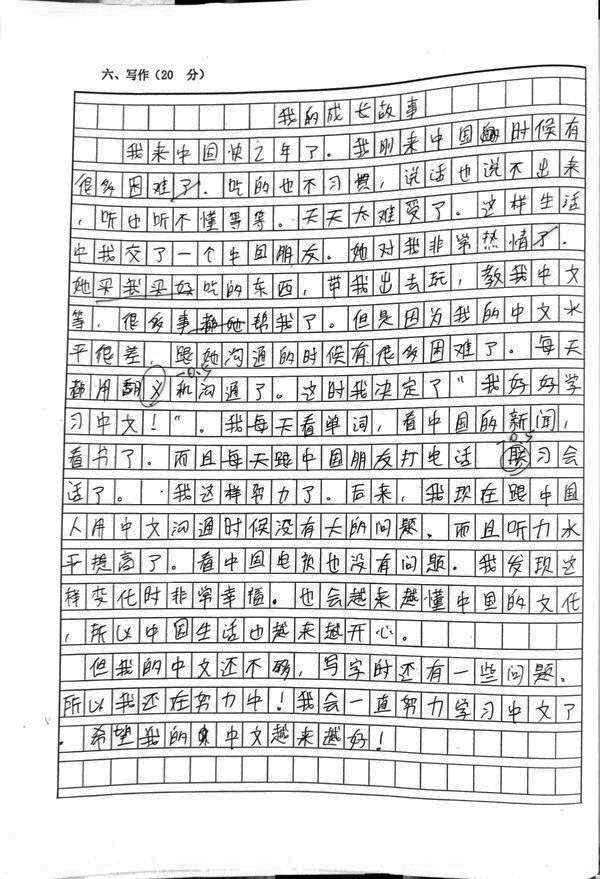 六、写作（20 分）
我的成长故事
我来中国快2年了。我刚来中国时候有
很多困难了。吃的也不习惯，说话也说不出来
，听也听不懂等等。天天太难受了。这样生活
中我交了一个中国朋友。她对我非常热情了.
她买我买好吃的东西，带我出去玩，教我中文
等，很多事都她帮我了。但是因为我的中文水
平很差，跟她沟通的时候有很多困难了。每天
都用翻义机沟通了。这时我决定了"我好好学
习中文！"。我每天看单词，看中国的新闻，
看书了。而且每天跟中国朋友打电话 联习会
话了。 我这样努力了。后来，我现在跟中国
人用中文沟通时候没有大的问题，而且听力水
平提高了。看中国电视也没有问题。我发现这
样变化时非常幸福。也会越来越懂中国的文化
，所以中国生活也越来越开心。
但我的中文还不够，写字时还有一些问题。
所以我还在努力中！我会一直努力学习中文了
．希望我的中文越来越好！
-0.5
-0.5